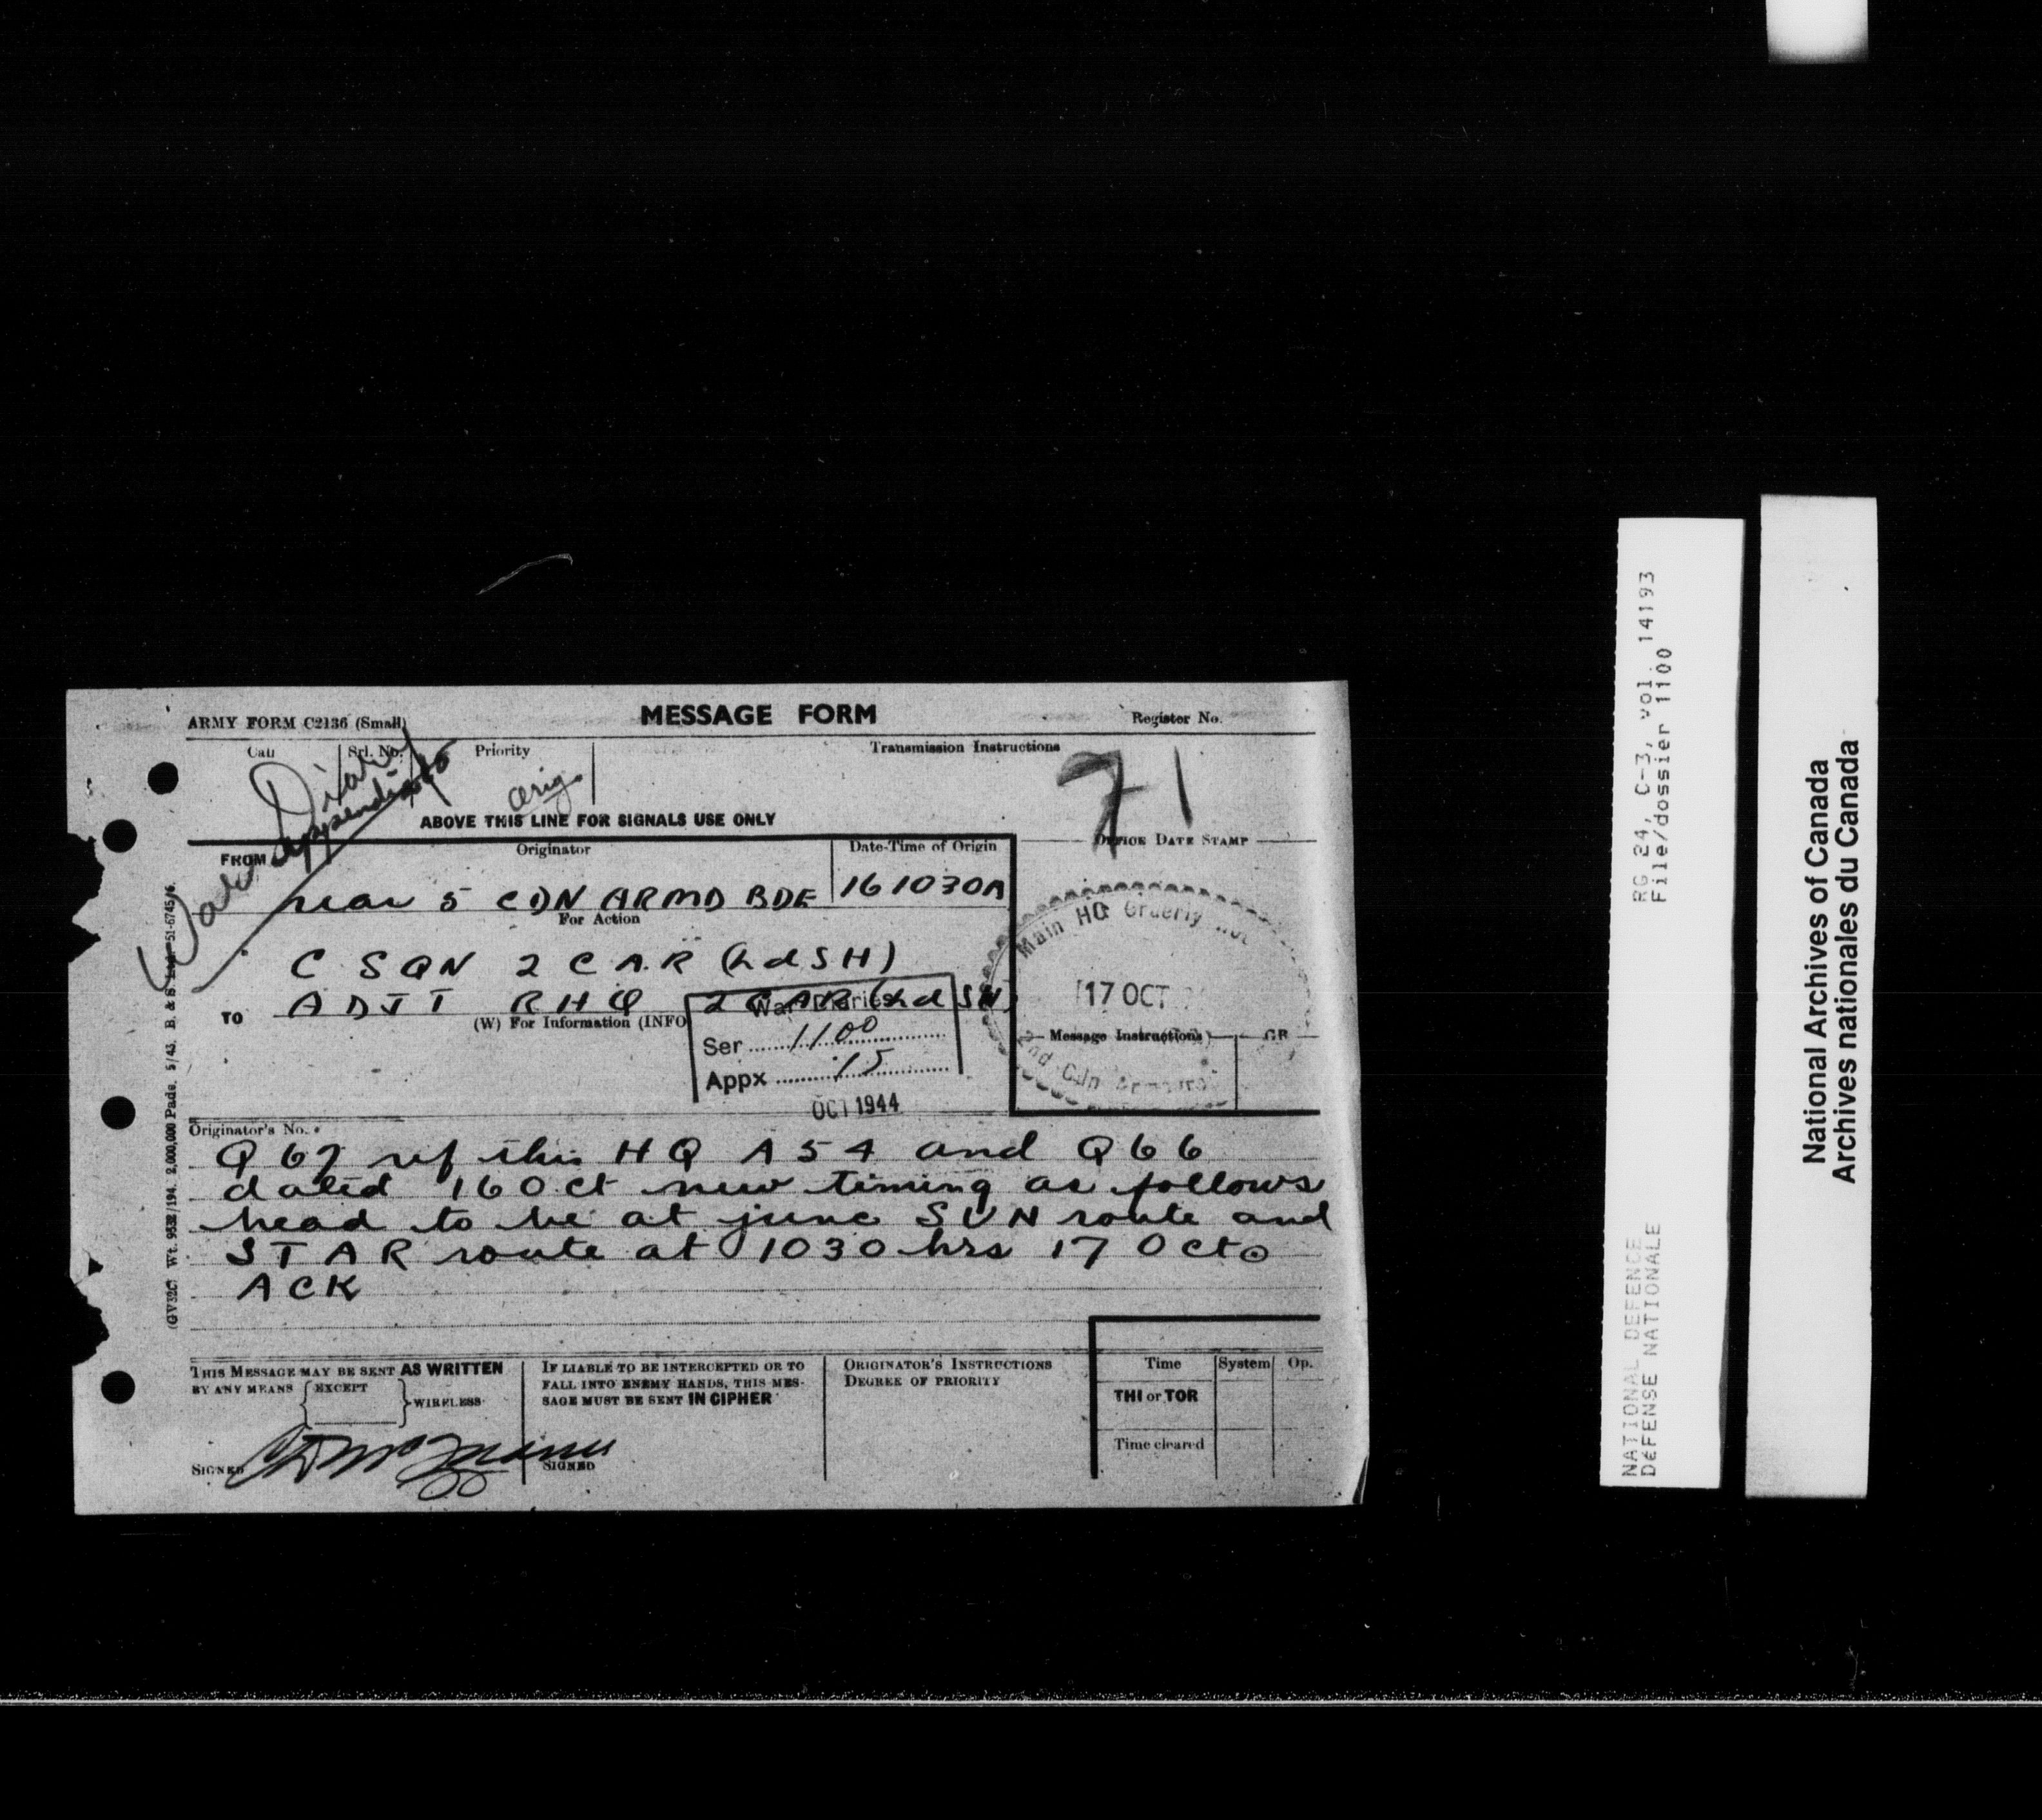 ARMY FORM C2136 (Small)
MESSAGE FORM
Register No.
Call
Srl. No.
Priority
Transmission Instructions
Diary
Appendix
orig.
71
ABOVE THIS LINE FOR SIGNALS USE ONLY
FROM
Originator
Date-Time of Origin
OFFICE DATE STAMP
rear 5 CDN ARMD BDE
161030A
For Action
C SQN 2 CAR (LdSH)
TO
ADJT RHQ 2 CAR (LdSH)
(W) For Information (INFO
War Diaries
Ser 1100
Appx 15
OCT 1944
Main HQ Orderly
17 OCT
2nd Cdn Armoured
Message Instructions
GR
Originator's No.
Q67 ref this HQ A54 and Q66
dated 16 Oct new timing as follows
head to be at junc SUN route and
STAR route at 1030 hrs 17 Oct⊙
ACK
THIS MESSAGE MAY BE SENT AS WRITTEN
BY ANY MEANS { EXCEPT } WIRELESS.
SIGNED
IF LIABLE TO BE INTERCEPTED OR TO
FALL INTO ENEMY HANDS, THIS MES-
SAGE MUST BE SENT IN CIPHER
SIGNED
ORIGINATOR'S INSTRUCTIONS
DEGREE OF PRIORITY
Time
System
Op.
THI or TOR
Time cleared
Wt. 9538/194. 2,000,000 Pads. 5/43.
RG 24, C-3, vol. 14193
File/dossier 1100
NATIONAL DEFENCE
DéFENSE NATIONALE
National Archives of Canada
Archives nationales du Canada